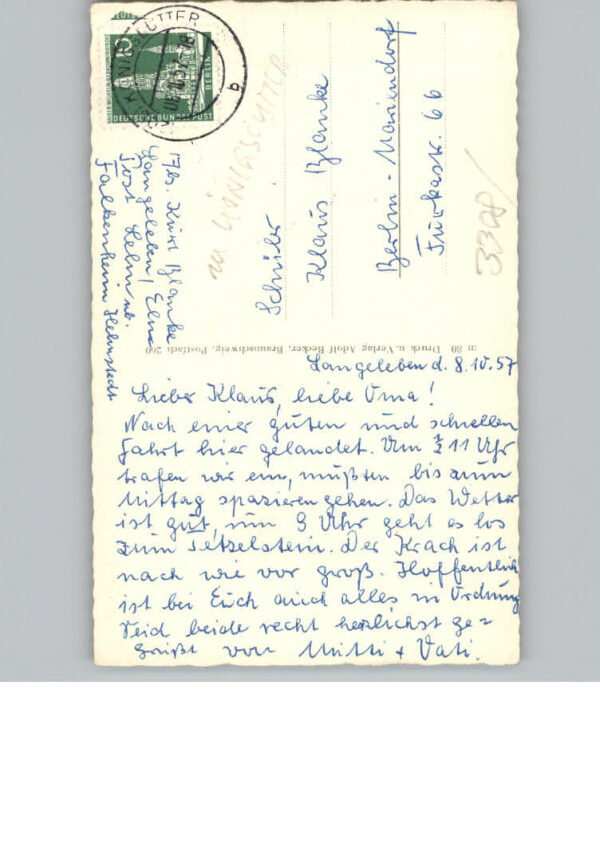 DEUTSCHE BUNDESPOST
BERLIN
b
Schüler
Klaus Blanke
Berlin-Mariendorf
Furkastr. 66
3308/
Abs. Kurt Blanke
Langeleben / Elm
Post Lelm üb.
Falkenheim Helmstedt
m 80 Druck u. Verlag Adolf Becker, Braunschweig, Postfach 260
Langeleben d. 8.10.57
Lieber Klaus, liebe Oma!
Nach einer guten und schnellen
Fahrt hier gelandet. Um ¾ 11 Uhr
trafen wir ein, mußten bis zum
Mittag spazieren gehen. Das Wetter
ist gut, um 3 Uhr geht es los
zum Tetzelstein. Der Krach ist
nach wie vor groß. Hoffentlich
ist bei Euch auch alles in Ordnung
Seid beide recht herzlichst ge=
grüßt von Mutti + Vati.